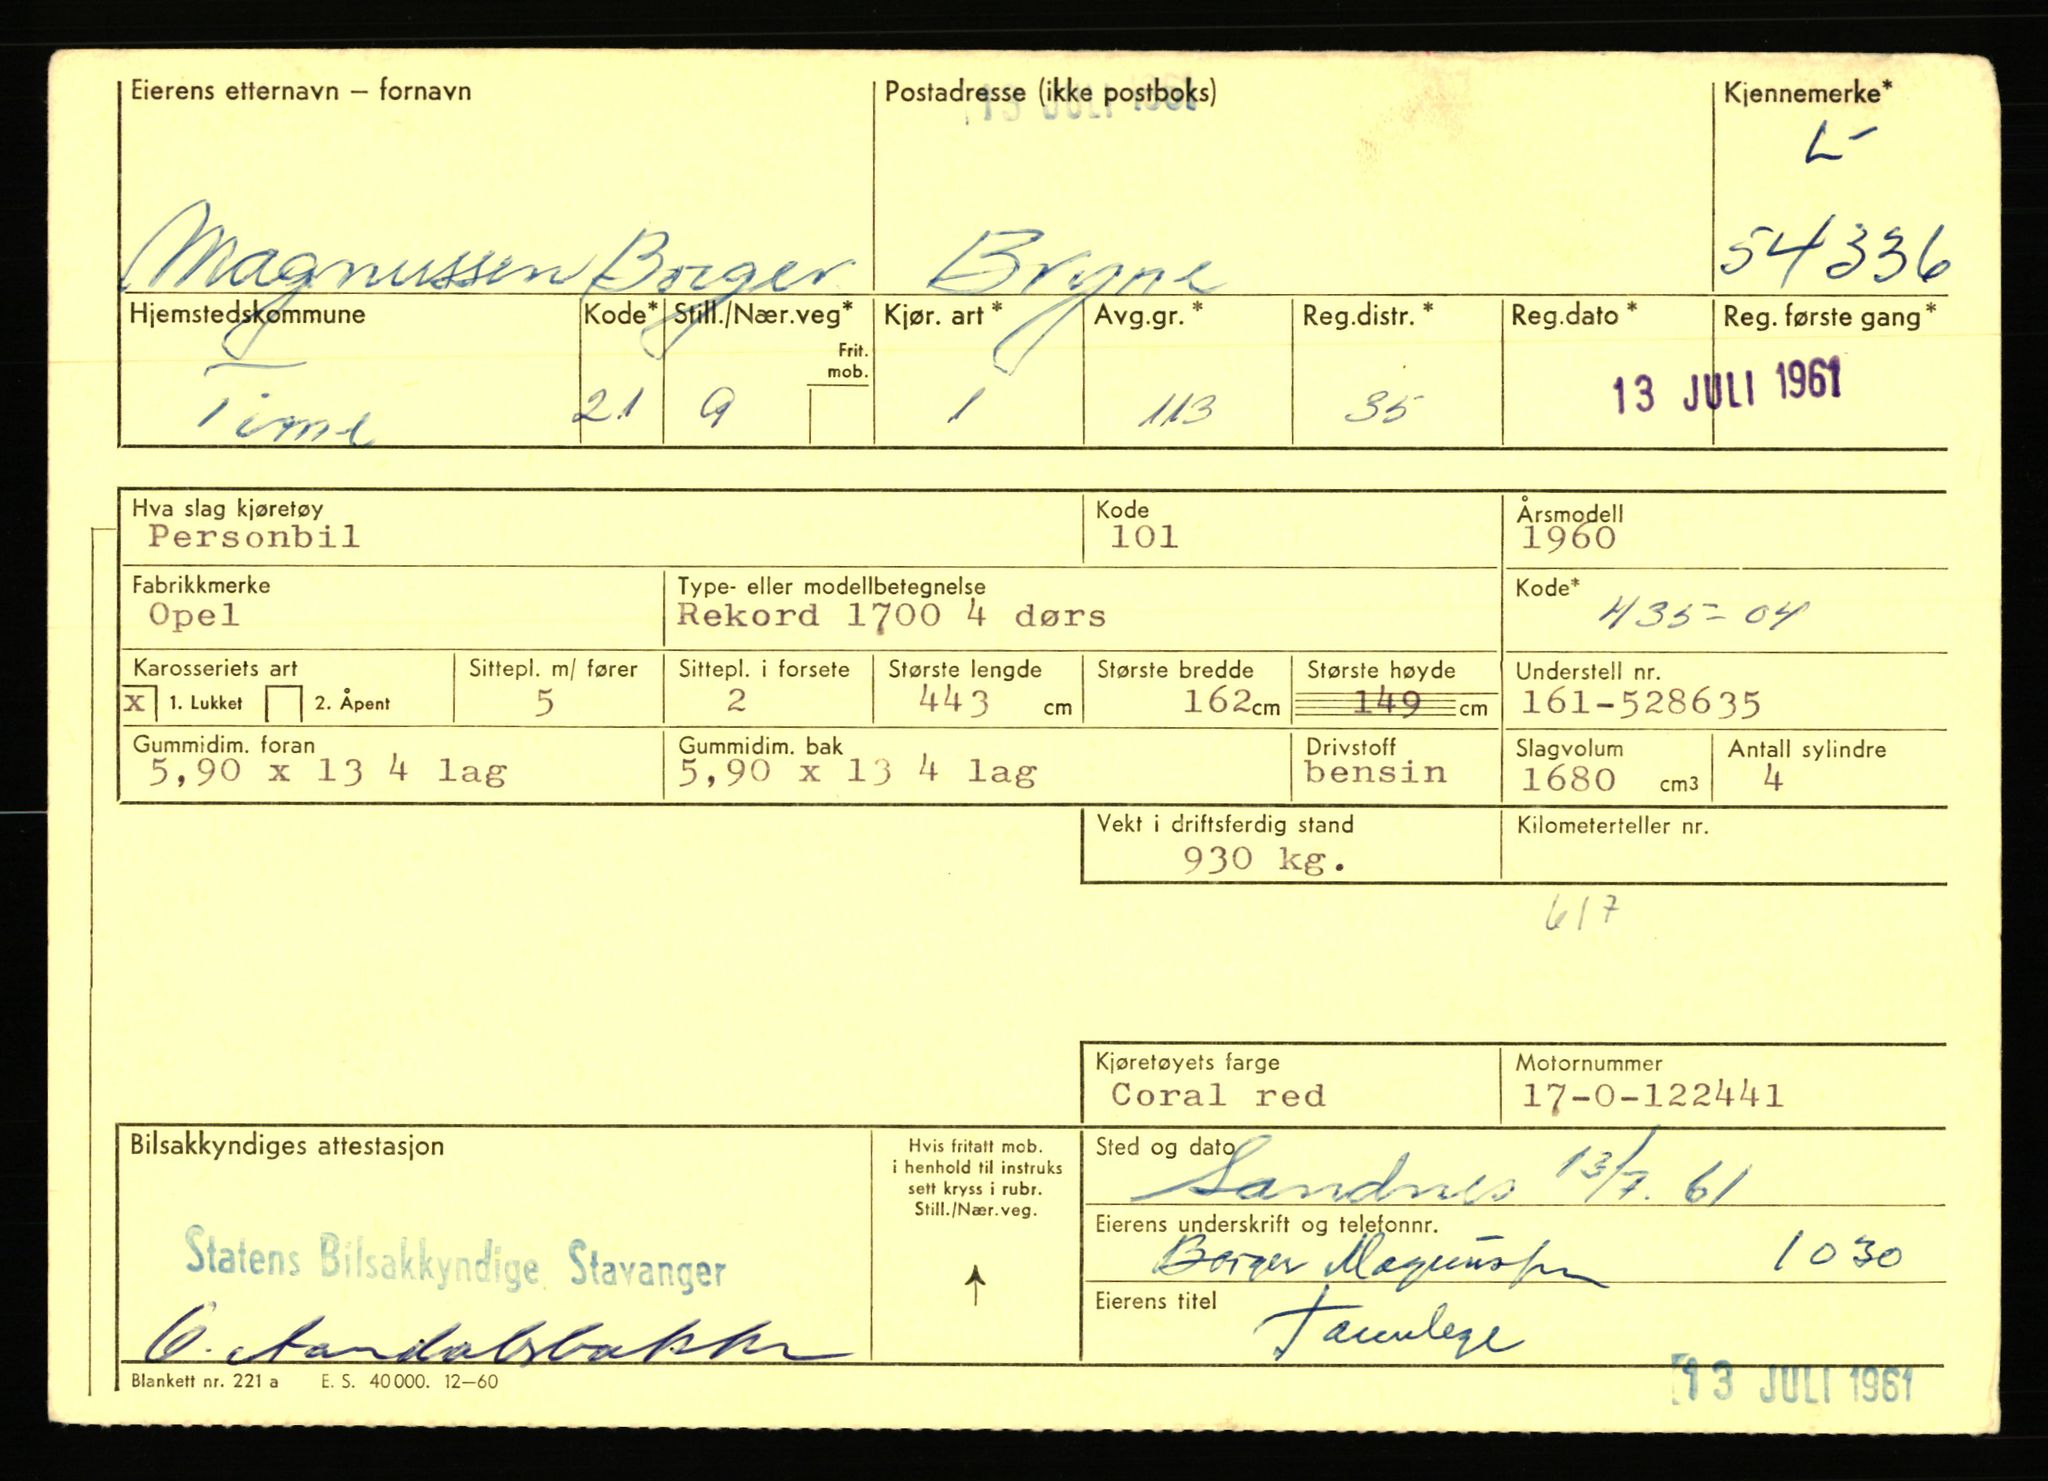 Eierens etternavn – fornavn
Postadresse (ikke postboks)
Kjennemerke*
13 JULI 1961
L-
Magnussen Borger
Bryne
54336
Hjemstedskommune
Kode*
Still./Nær.veg*
Kjør. art*
Avg.gr.*
Reg.distr.*
Reg.dato*
Reg. første gang*
Frit. mob.
Time
21
9
1
113
35
13 JULI 1961
Hva slag kjøretøy
Kode
Årsmodell
Personbil
101
1960
Fabrikkmerke
Type- eller modellbetegnelse
Kode*
Opel
Rekord 1700 4 dørs
435-04
Karosseriets art
Sittepl. m/ fører
Sittepl. i forsete
Største lengde
Største bredde
Største høyde
Understell nr.
x 1. Lukket
2. Åpent
5
2
443 cm
162 cm
149 cm
161-528635
Gummidim. foran
Gummidim. bak
Drivstoff
Slagvolum
Antall sylindre
5,90 x 13 4 lag
5,90 x 13 4 lag
bensin
1680 cm3
4
Vekt i driftsferdig stand
Kilometerteller nr.
930 kg.
617
Kjøretøyets farge
Motornummer
Coral red
17-0-122441
Bilsakkyndiges attestasjon
Hvis fritatt mob.
i henhold til instruks
sett kryss i rubr.
Still./Nær.veg.
Sted og dato
Sandnes 13/7. 61
Eierens underskrift og telefonnr.
Borger Magnussen 1030
Statens Bilsakkyndige Stavanger
Eierens titel
Tannlege
13 JULI 1961
Blankett nr. 221 a E. S. 40000. 12–60